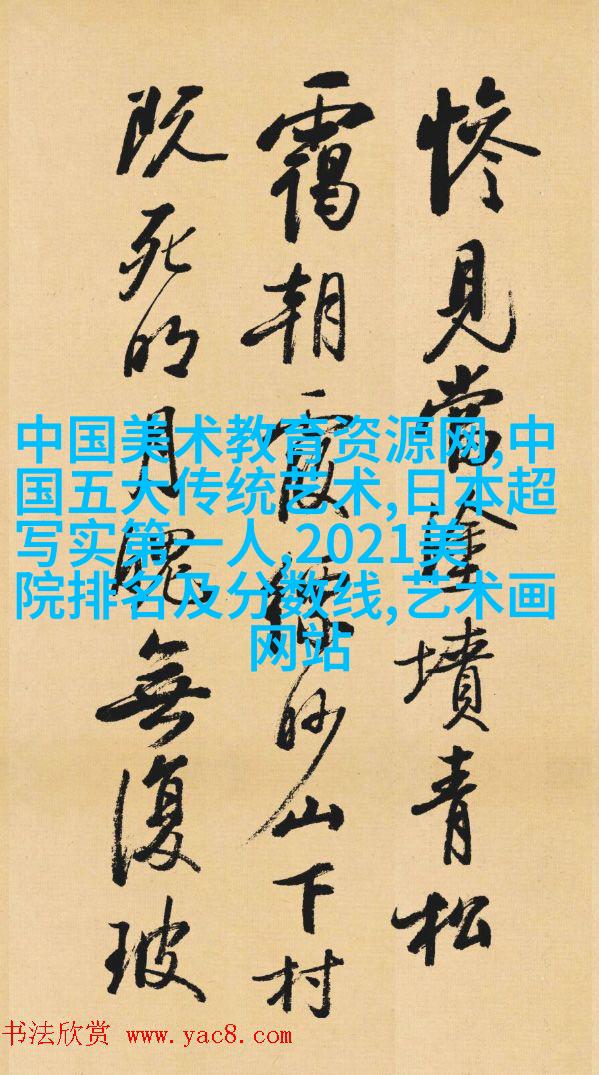 惨見當塗墳青松
靄朝霞縹眇山下村
既死明月魄無復玻
中国美术教育资源网,中
国五大传统艺术,日本超
写实第一人,2021美
院排名及分数线,艺术画
网站
书法欣赏 www.yac8.com